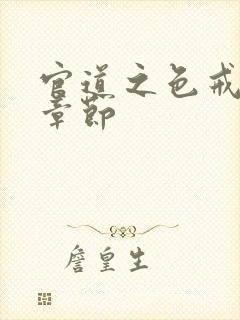 官道之色戒
章节
詹皇生